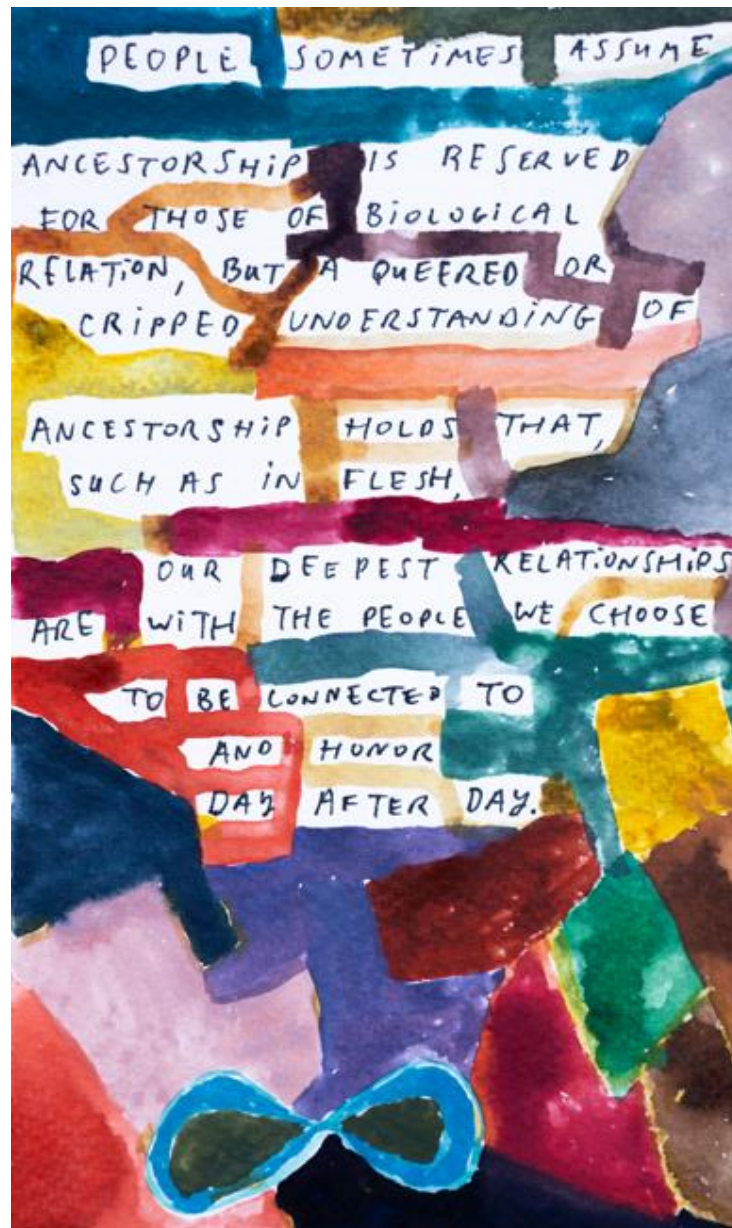 PEOPLE SOMETIMES ASSUME
ANCESTORSHIP IS RESERVED
FOR THOSE OF BIOLOGICAL
RELATION, BUT A QUEERED OR
CRIPPED UNDERSTANDING OF
ANCESTORSHIP HOLDS THAT,
SUCH AS IN FLESH,
OUR DEEPEST RELATIONSHIPS
ARE WITH THE PEOPLE WE CHOOSE
TO BE CONNECTED TO
AND HONOR
DAY AFTER DAY.